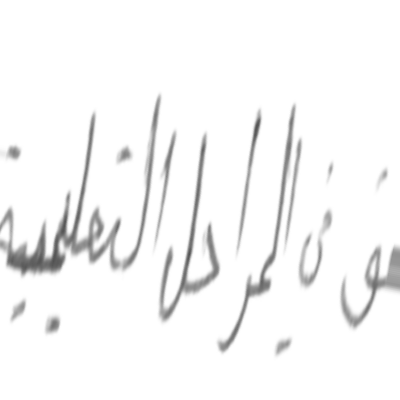 في المراحل التعليمية